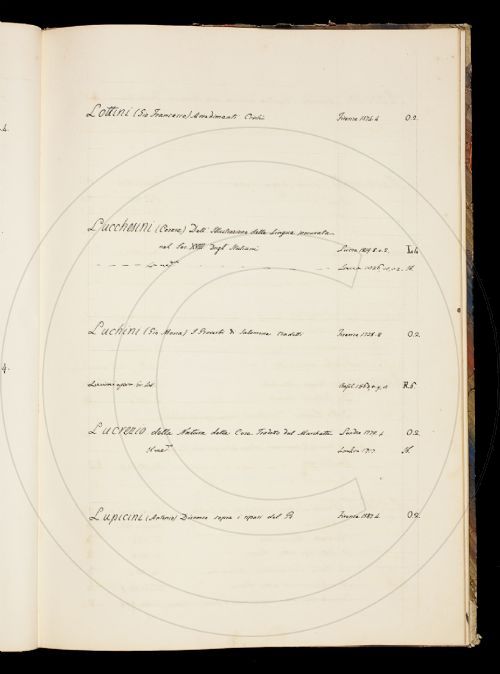 4.
Lottini (Gio Francesco) Avvedimenti Civili Firenze 1574.4 O.2.
Lucchesini (Cesare) Dell' Illustrazione delle Lingue procurata
nel Sec. XVIII dagli Italiani Lucca 8. L.4
Lucca
4.
Luchini (Gio Maria) I Proverbi di Salomone tradotti Firenze 8 O.2.
R.6
Lucrezio della Natura delle Cose Tradotto dal Marchetti Londra 4 O.2
Londra 1717
Lupicini (Antonio) Discorso sopra i ripari del Pò Firenze 1587.4 O.2.